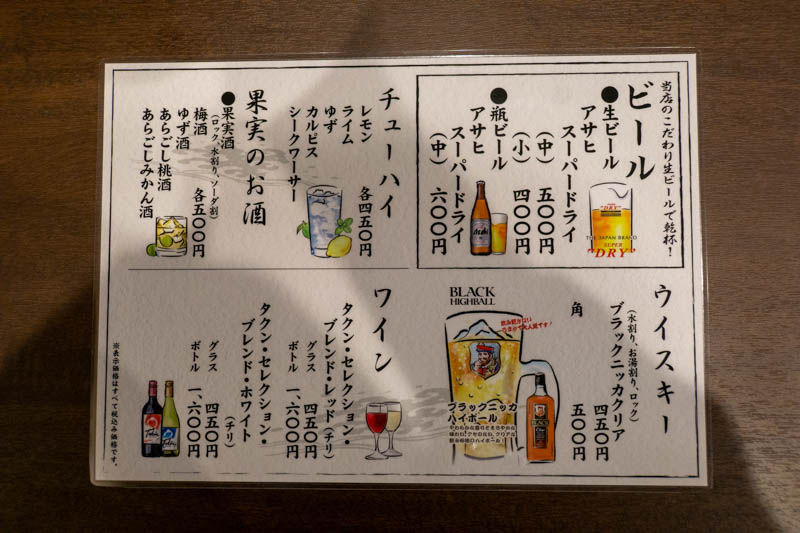 当店のこだわり生ビールで乾杯！
ビール
●生ビール
アサヒ
スーパードライ
（中） 五〇〇円
（小） 四〇〇円
●瓶ビール
アサヒ
スーパードライ
（中） 六〇〇円
"DRY"
THE JAPAN BRAND
SUPER
"DRY"
Asahi
チューハイ
レモン
ライム
ゆず
カルピス
シークワーサー
各四五〇円
果実のお酒
●果実酒
（ロック、水割り、ソーダ割）
梅酒
ゆず酒
あらごし桃酒
あらごしみかん酒
各五〇〇円
ウイスキー
ブラックニッカクリア
（水割り、お湯割り、ロック）
四五〇円
角 五〇〇円
BLACK
HIGHBALL
ブラックニッカ
ハイボール
BLACK
ワイン
タクン・セレクション・
ブレンド・レッド（チリ）
グラス 四五〇円
ボトル 一、六〇〇円
タクン・セレクション・
ブレンド・ホワイト
（チリ）
グラス 四五〇円
ボトル 一、六〇〇円
※表示価格はすべて税込み価格です。